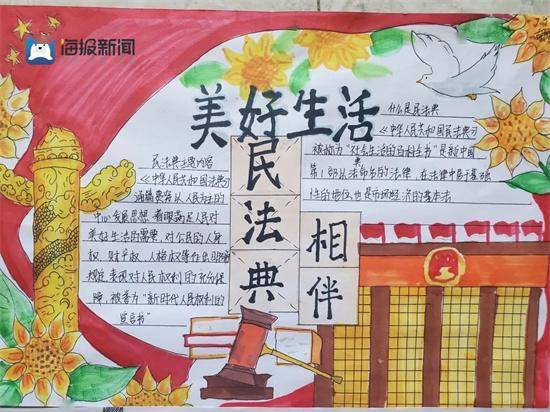 海报新闻
美好生活
民法典
相伴
民法典主要内容
《中华人民共和国民法典》
涵盖贯穿以人民为主的
中心发展思想,着眼满足人民对
美好生活的需要,对公民的人身
权、财产权、人格权等作出明确
规定,表现对人民权利的充分保
障,被誉为“新时代人民权利的
宣言书”
什么是民法典
《中华人民共和国民法典》
被称为“社会生活的百科全书”是新中国
第1部以法典命名的法律,在法律中居于基础
性的地位,也是市场经济的基本法